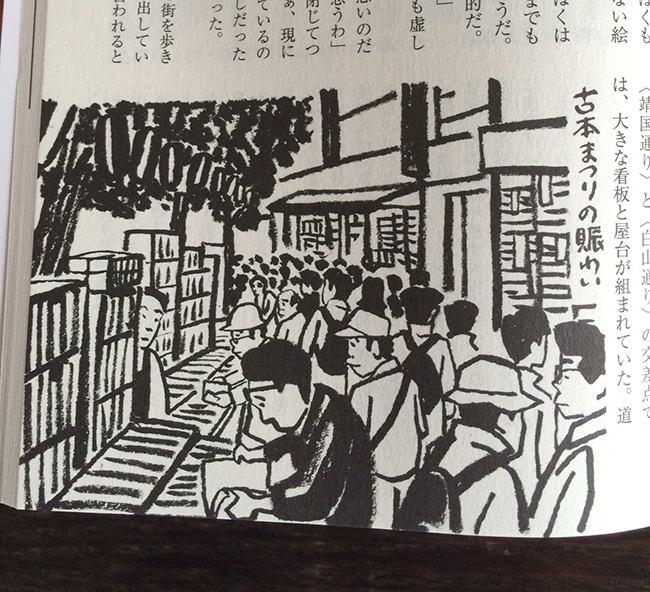 くも
ない絵
ぼくは
までも
うだ。
的だ。
」
も虚し
いのだ
思うわ」
閉じてつ
あ、現に
ているの
しだった
った。
街を歩き
出してい
言われると
〈靖国通り〉と〈白山通り〉の交差点で
は、大きな看板と屋台が組まれていた。道
古本まつりの賑わい